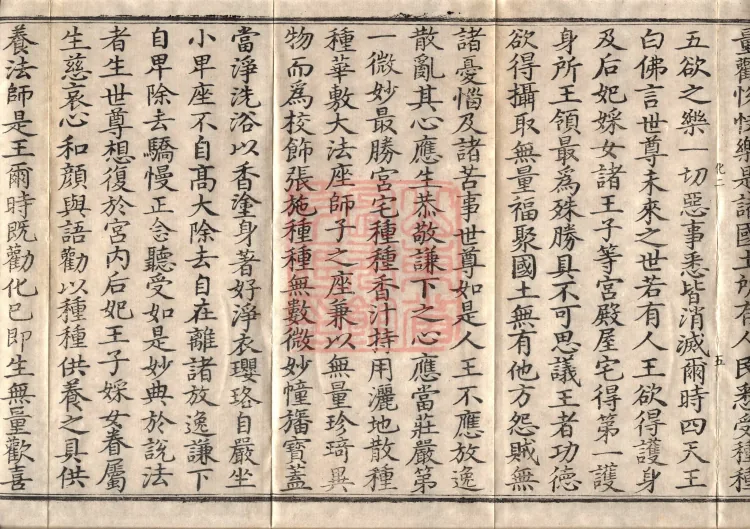 量歡悅快樂是諸國土所有人民悉受種種
五欲之樂一切惡事悉皆消滅爾時四天王
白佛言世尊未來之世若有人王欲得護身
及后妃婇女諸王子等宮殿屋宅得第一護
身所王領最為殊勝具不可思議王者功德
欲得攝取無量福聚國土無有他方怨賊無
諸憂惱及諸苦事世尊如是人王不應放逸
散亂其心應生恭敬謙下之心應當莊嚴第
一微妙最勝宮宅種種香汁持用灑地散種
種華敷大法座師子之座兼以無量珍琦異
物而為校飾張施種種無數微妙幢旛寶蓋
當淨洗浴以香塗身著好淨衣瓔珞自嚴坐
小卑座不自高大除去自在離諸放逸謙下
自卑除去驕慢正念聽受如是妙典於說法
者生世尊想復於宮內后妃王子婇女眷屬
生慈哀心和顏與語勸以種種供養之具供
養法師是王爾時既勸化已即生無量歡喜
化二
五